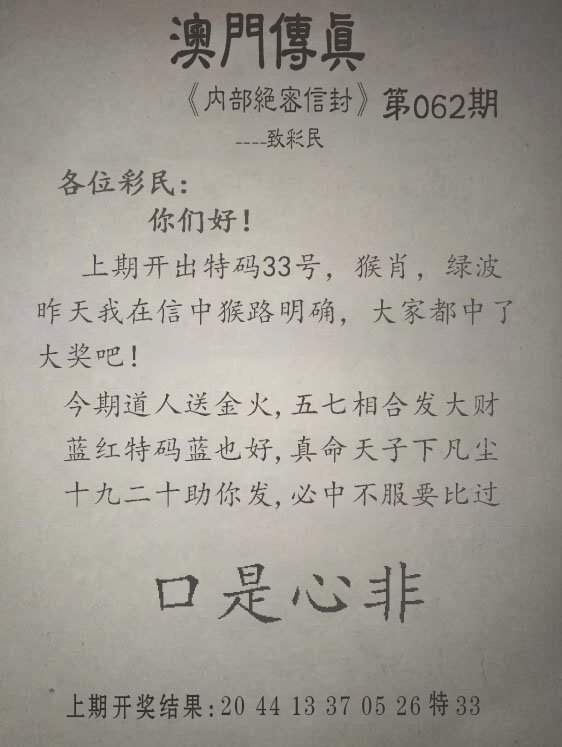 澳門傳眞
《内部絕密信封》第062期
----致彩民
各位彩民：
你们好！
上期开出特码33号，猴肖，绿波
昨天我在信中猴路明确，大家都中了
大奖吧！
今期道人送金火,五七相合发大财
蓝红特码蓝也好,真命天子下凡尘
十九二十助你发,必中不服要比过
口是心非
上期开奖结果:20 44 13 37 05 26 特 33